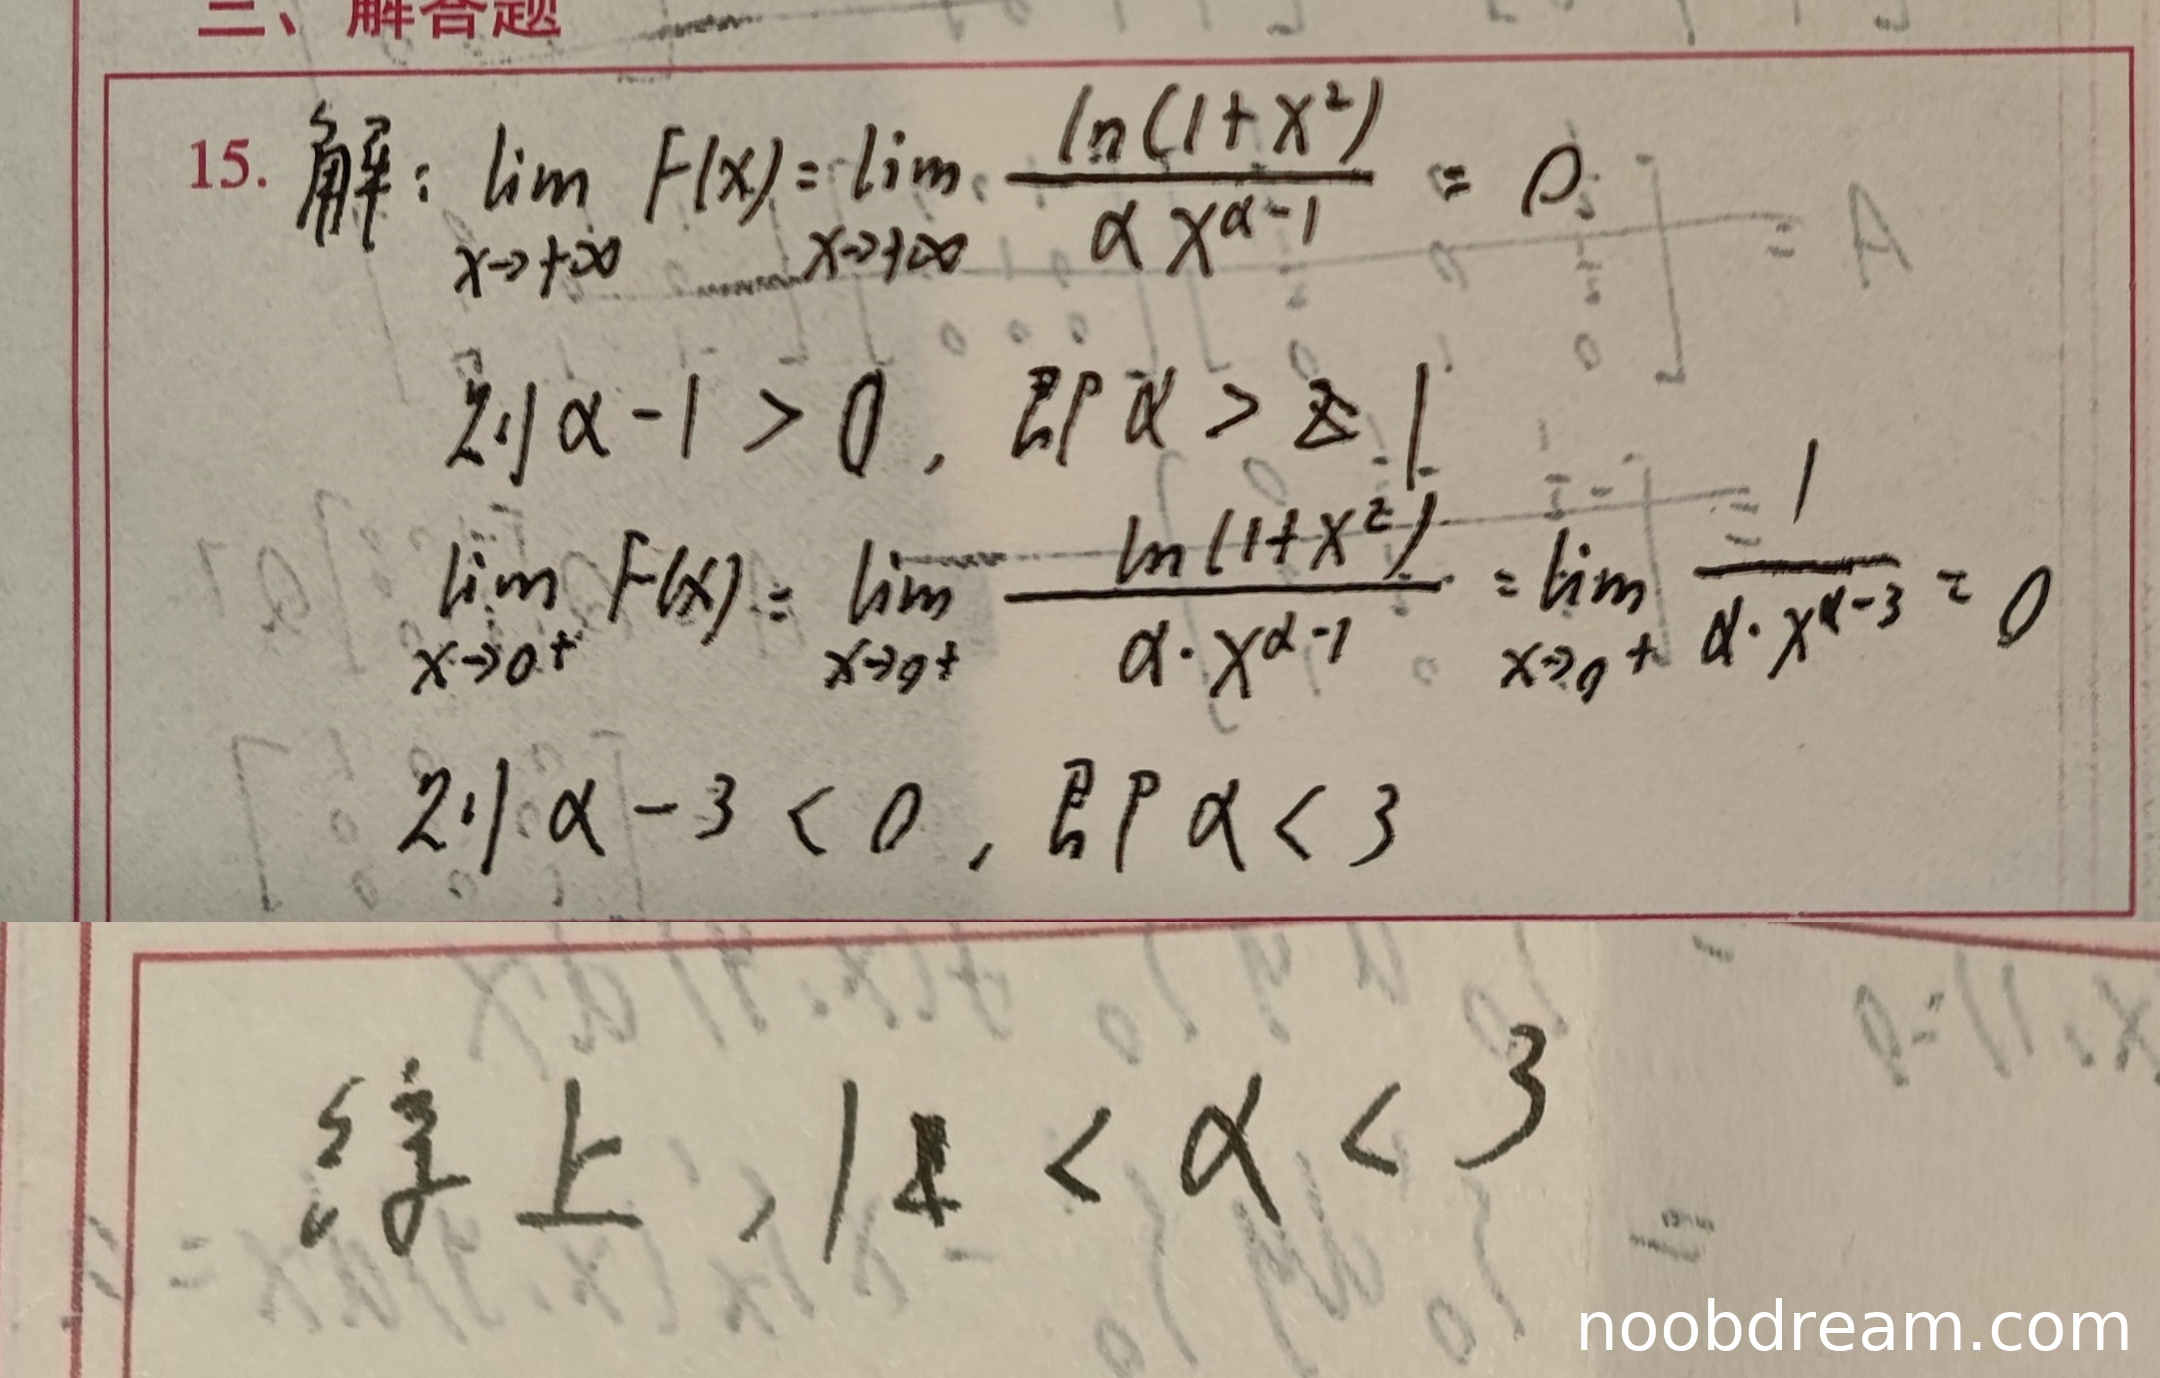 三、解答题
15. 解: lim x→+∞ F(x) = lim x→+∞ ln(1+x²) / αx^(α-1) = 0
则 α-1 > 0, 即 α > 1
lim x→0+ F(x) = lim x→0+ ln(1+x²) / α·x^(α-1) = lim x→0+ 1 / α·x^(α-3) = 0
则 α-3 < 0, 即 α < 3
综上, 1 < α < 3
noobdream.com